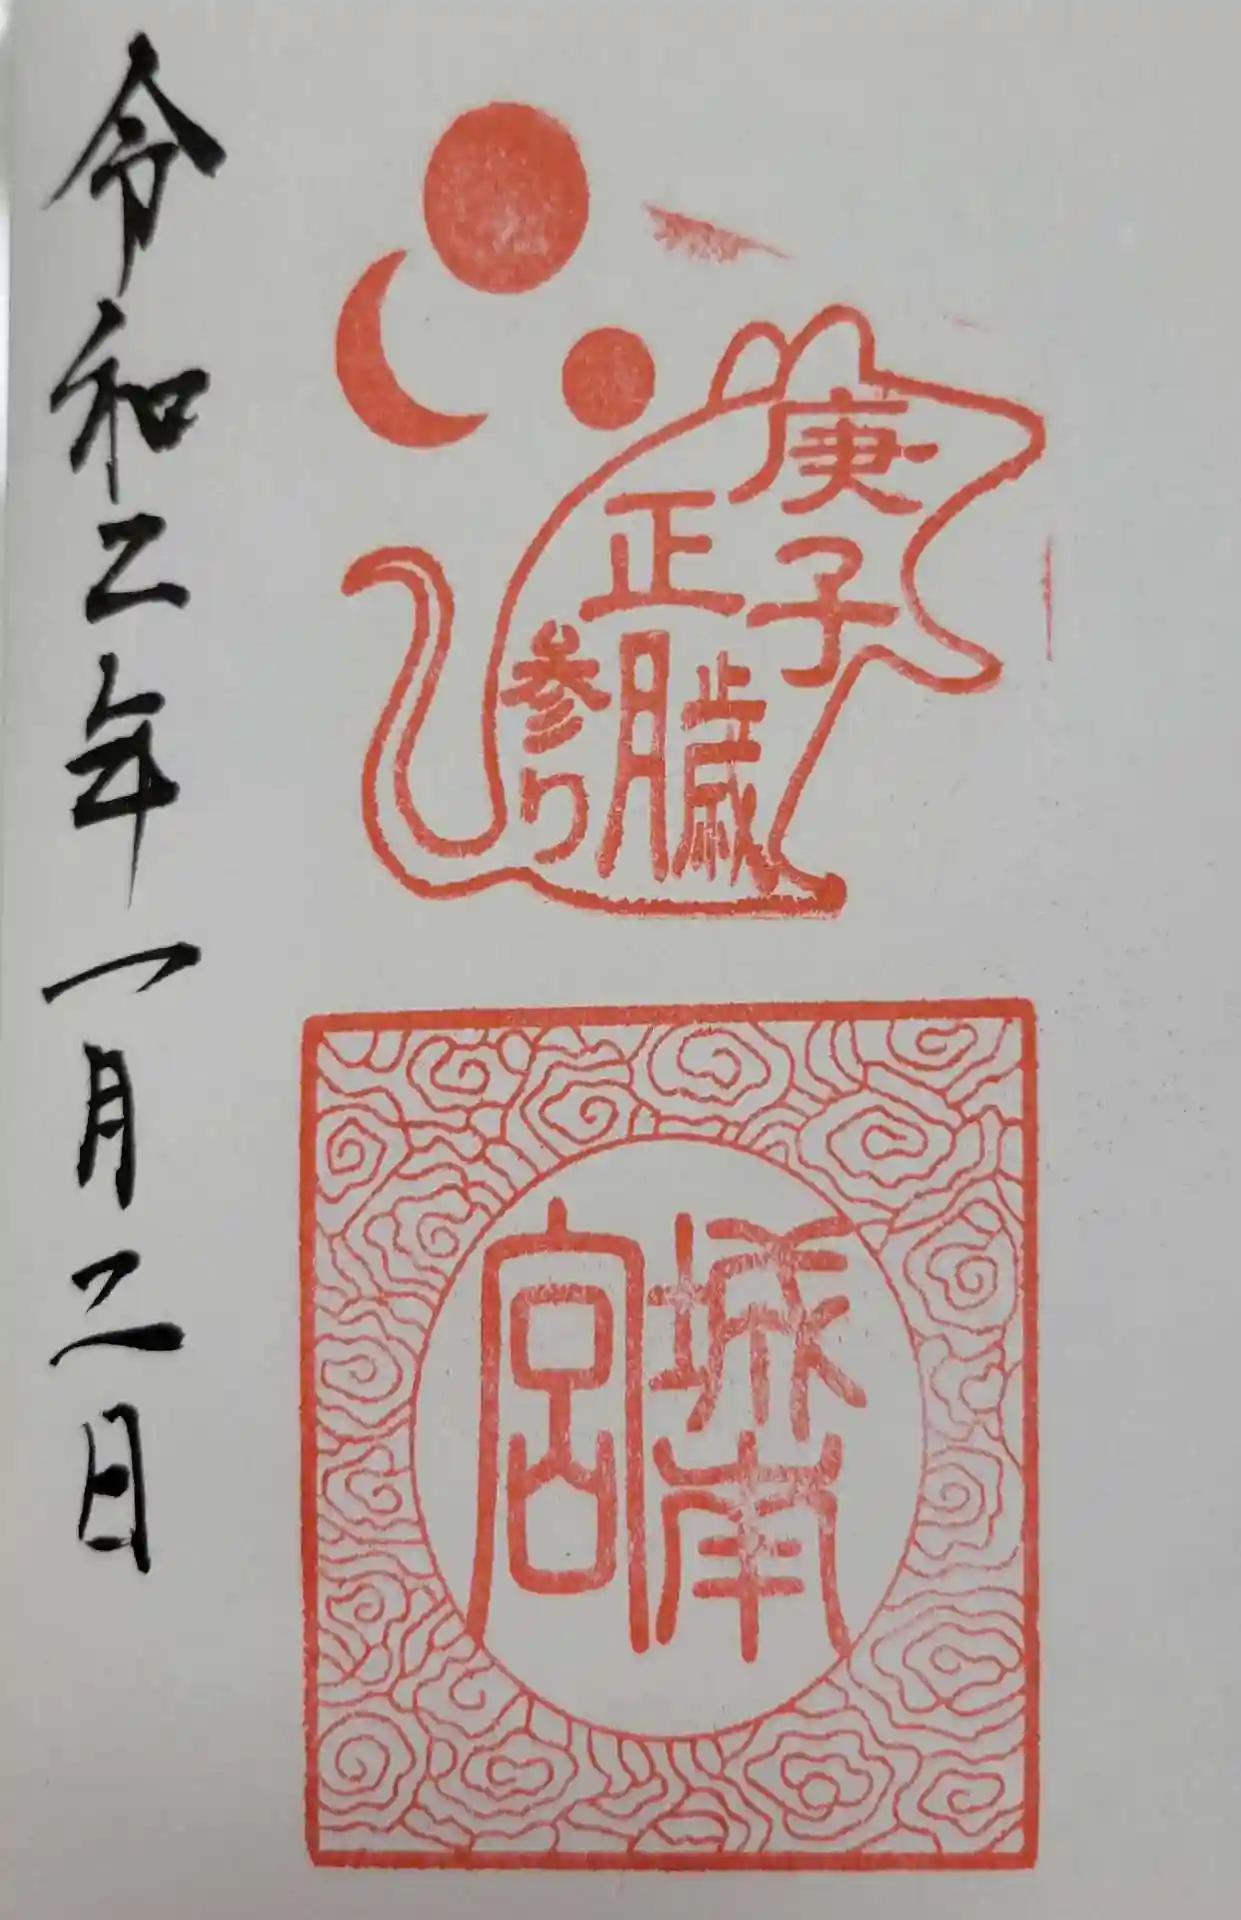 庚子歳
正月
参り
城南
宮
令和二年一月二日